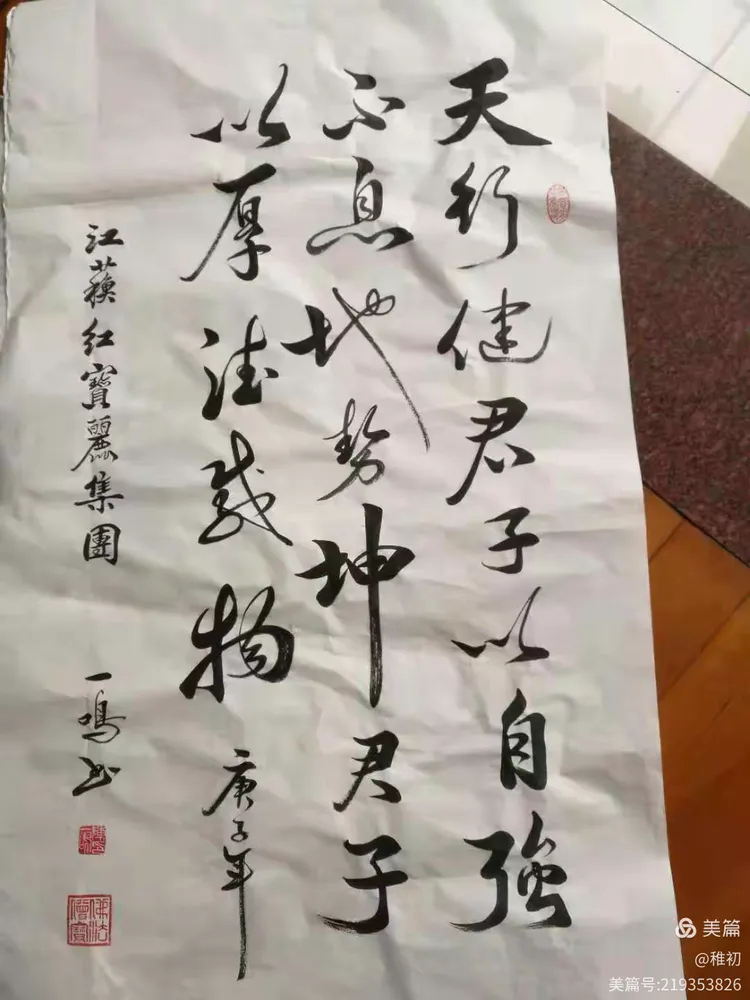 天行健君子以自強
不息地势坤君子
以厚德載物 庚子年
江蘇红寶麗集團
一鳴书
佛法僧寶
美篇
@稚初
美篇号:219353826